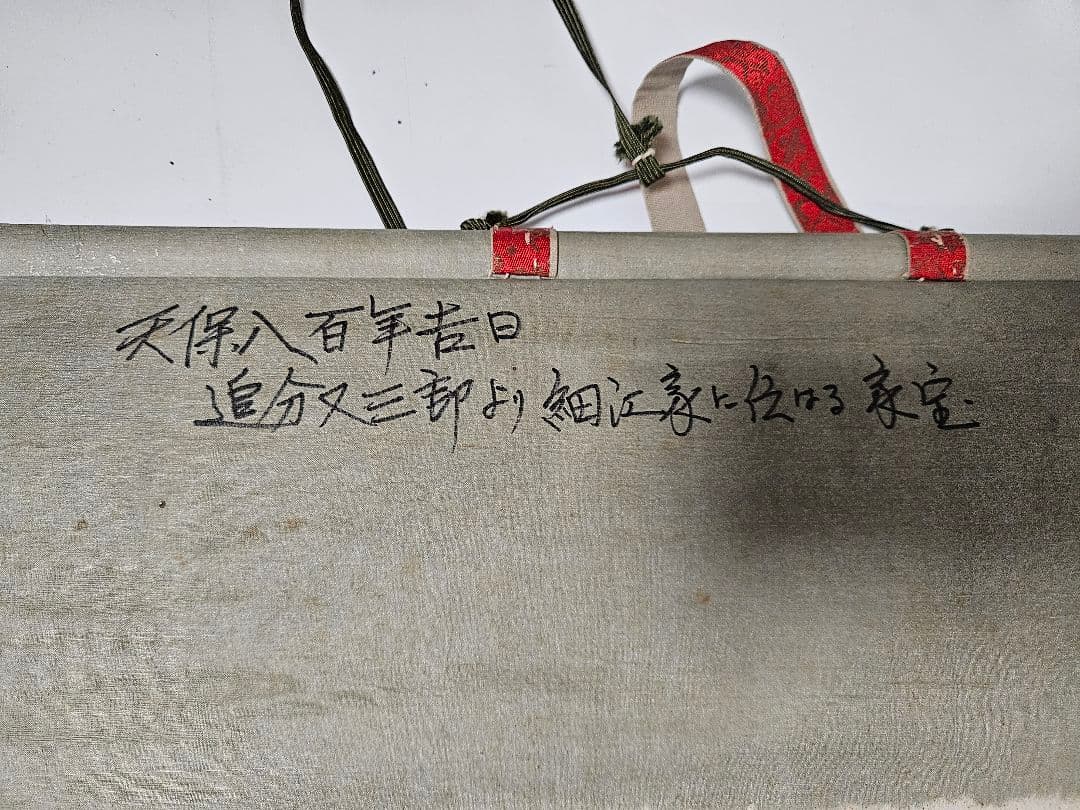 天保八百年吉日
追分又三郎より細江家に伝はる家宝.